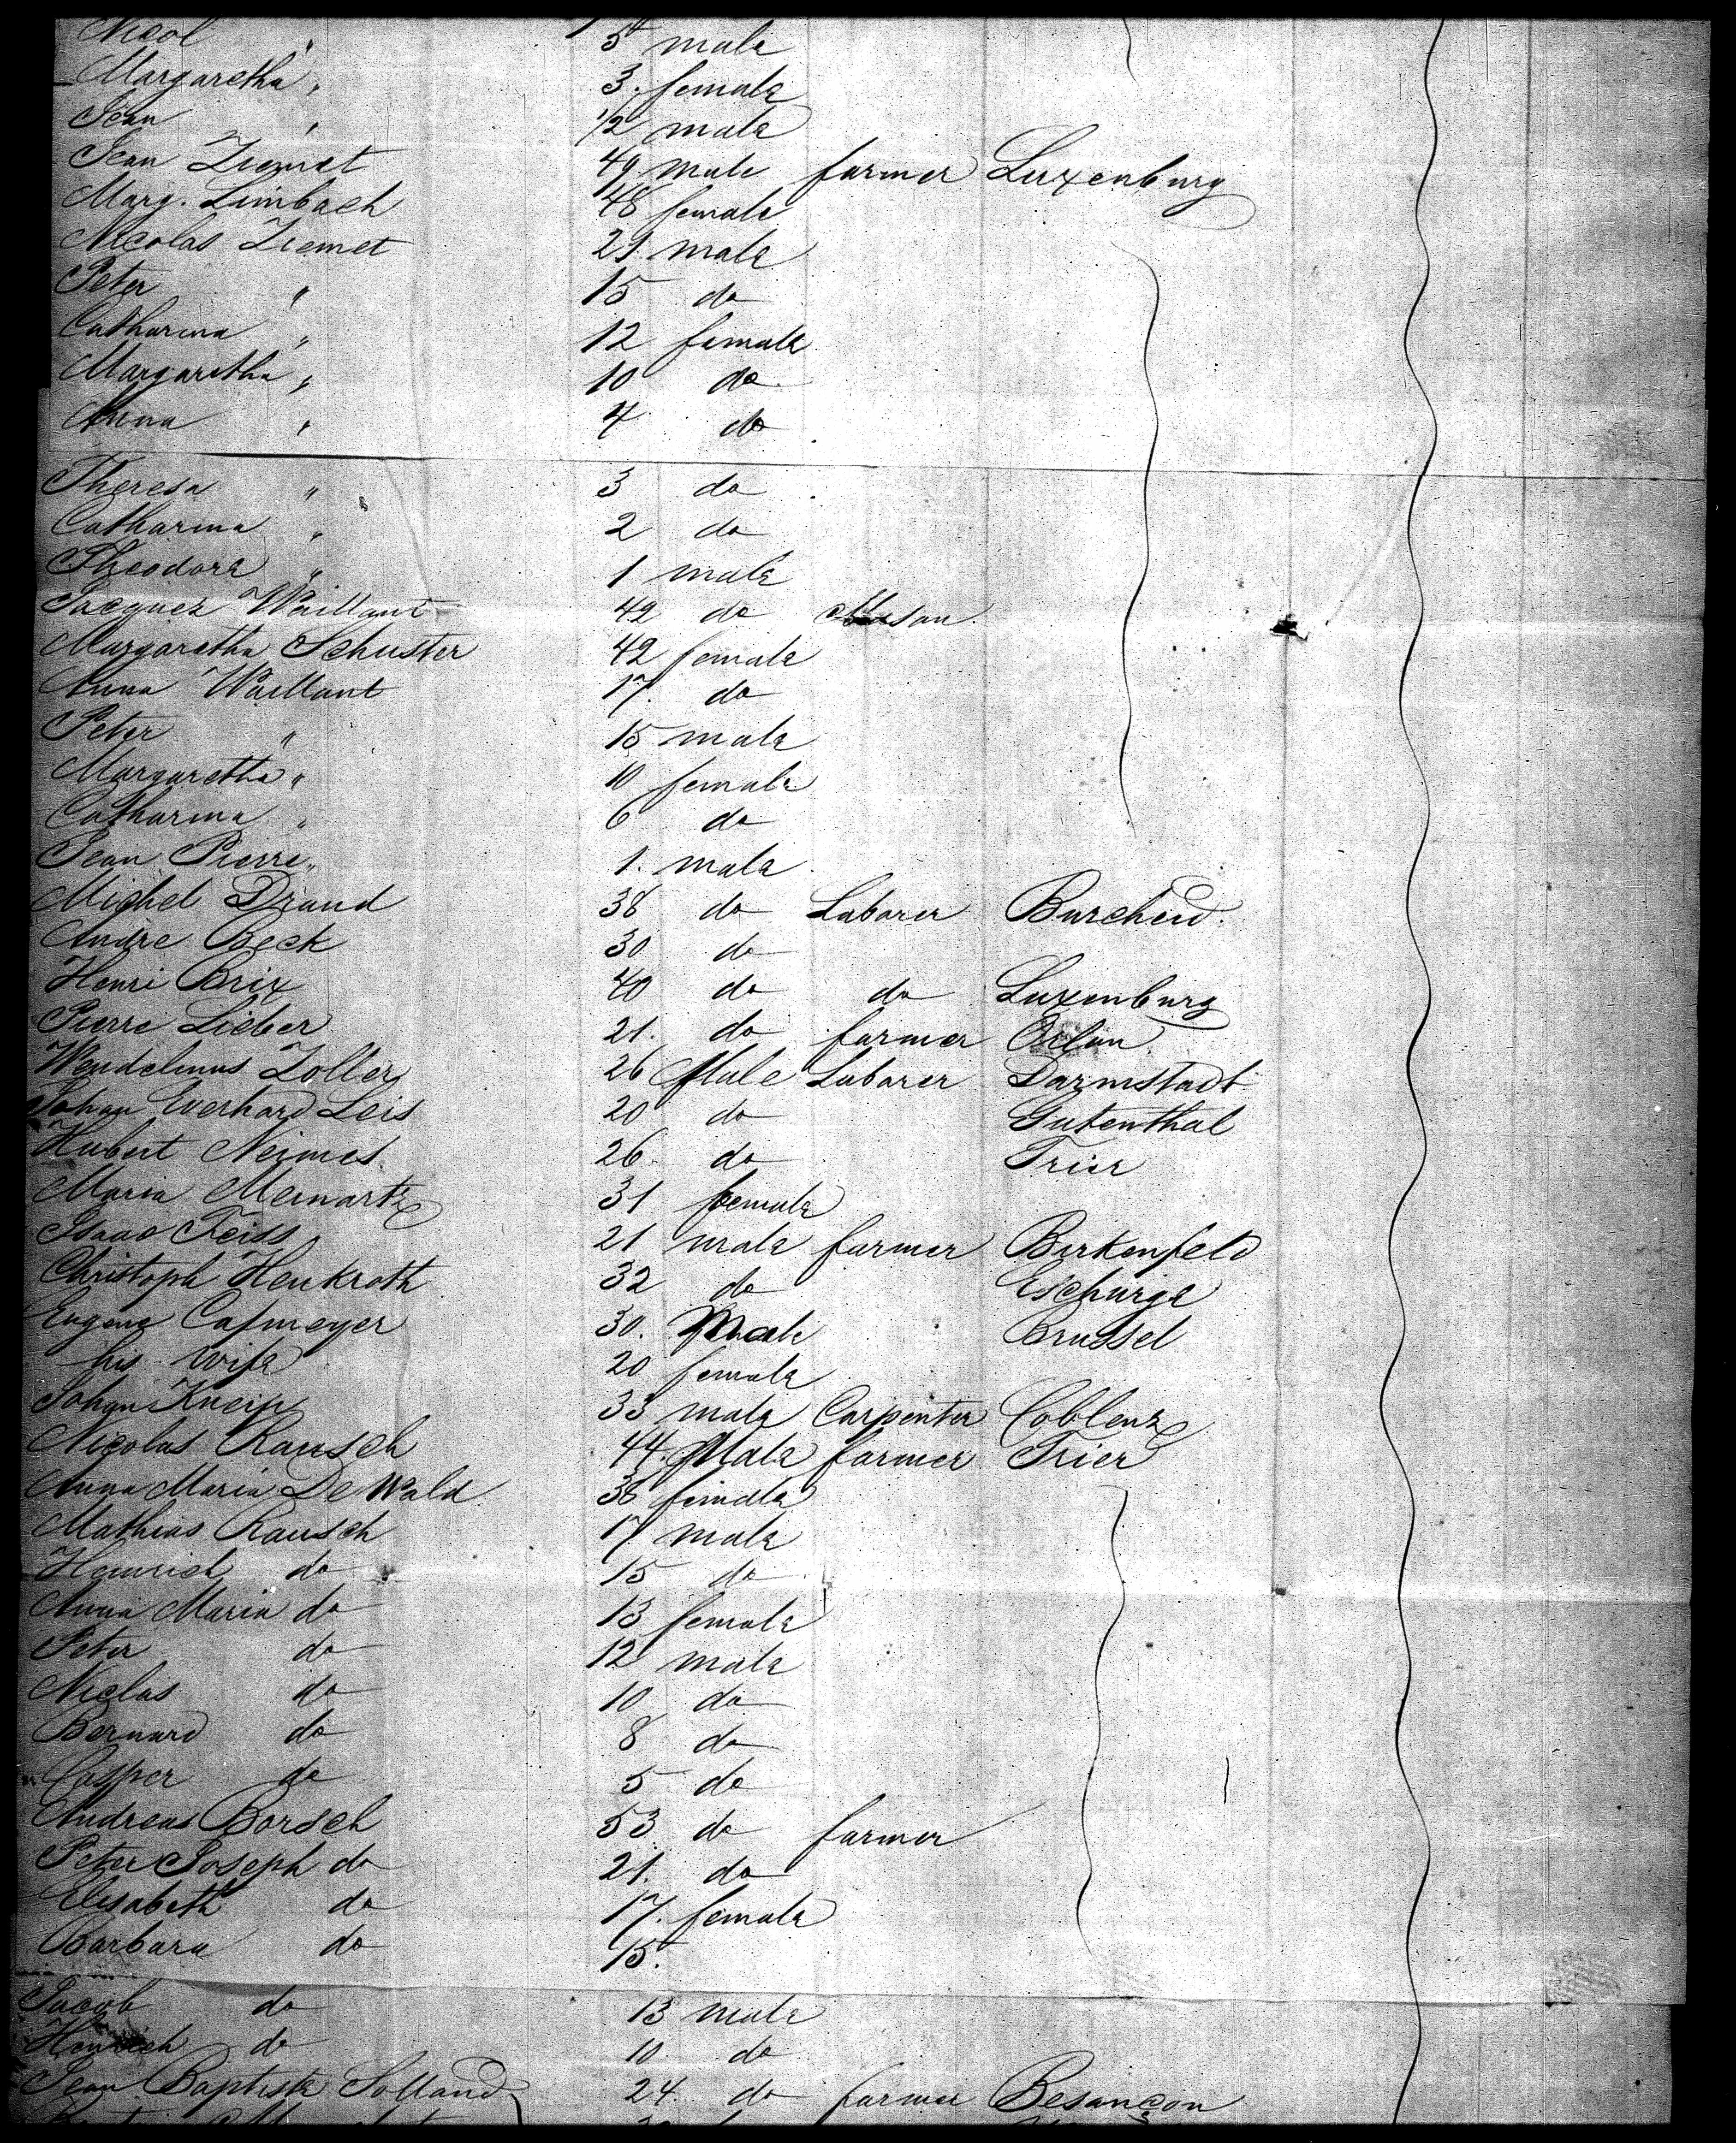 Nicol " 5 male
Margaretha " 3. female
Jean " 1/2 male
Jean Ziemet 49 male farmer Luxenburg
Marg. Limbach 48 female
Nicolas Ziemet 21. male
Peter " 15 do
Catharina " 12 female
Margaretha " 10 do
Anna " 4 do
Theresa " 3 do
Catharina " 2 do
Theodore " 1 male
Jacques Waillant 42 do Mason
Margaretha Schuster 42 female
Anna Waillant 17. do
Peter " 15 male
Margaretha " 10 female
Catharina " 6 do
Jean Pierre " 1. male
Michel Draud 38 do Laborer Burcheid.
Andre Beck 30 do
Henri Brix 40 do do Luxenburg
Pierre Lieber 21. do farmer Arlon
Wendelinus Zoller 26 Male Laborer Darmstadt
Johan Everhard Leis 20 do Gutenthal
Hubert Neimes 26. do Trier
Maria Meinartz 31 female
Isaac Feiss 21 male farmer Birkenfeld
Christoph Henkroth 32 do Eschwige
Eugene Cafmeyer 30. Male Brussel
his wife 20 female
Johan Kneip 33 male Carpenter Coblenz
Nicolas Rausch 44. Male farmer Trier
Anna Maria De Wald 38 female
Mathias Rausch 17 male
Heinrich do 15 do
Anna Maria do 13 female
Peter do 12 male
Niclas do 10 do
Bernard do 8 do
Casper do 5 do
Andreas Borsch 53 do farmer
Peter Joseph do 21. do
Elisabeth do 17. female
Barbara do 15.
Jacob do 13 male
Heinrich do 10 do
Jean Baptiste Solland 24. do farmer Besançon